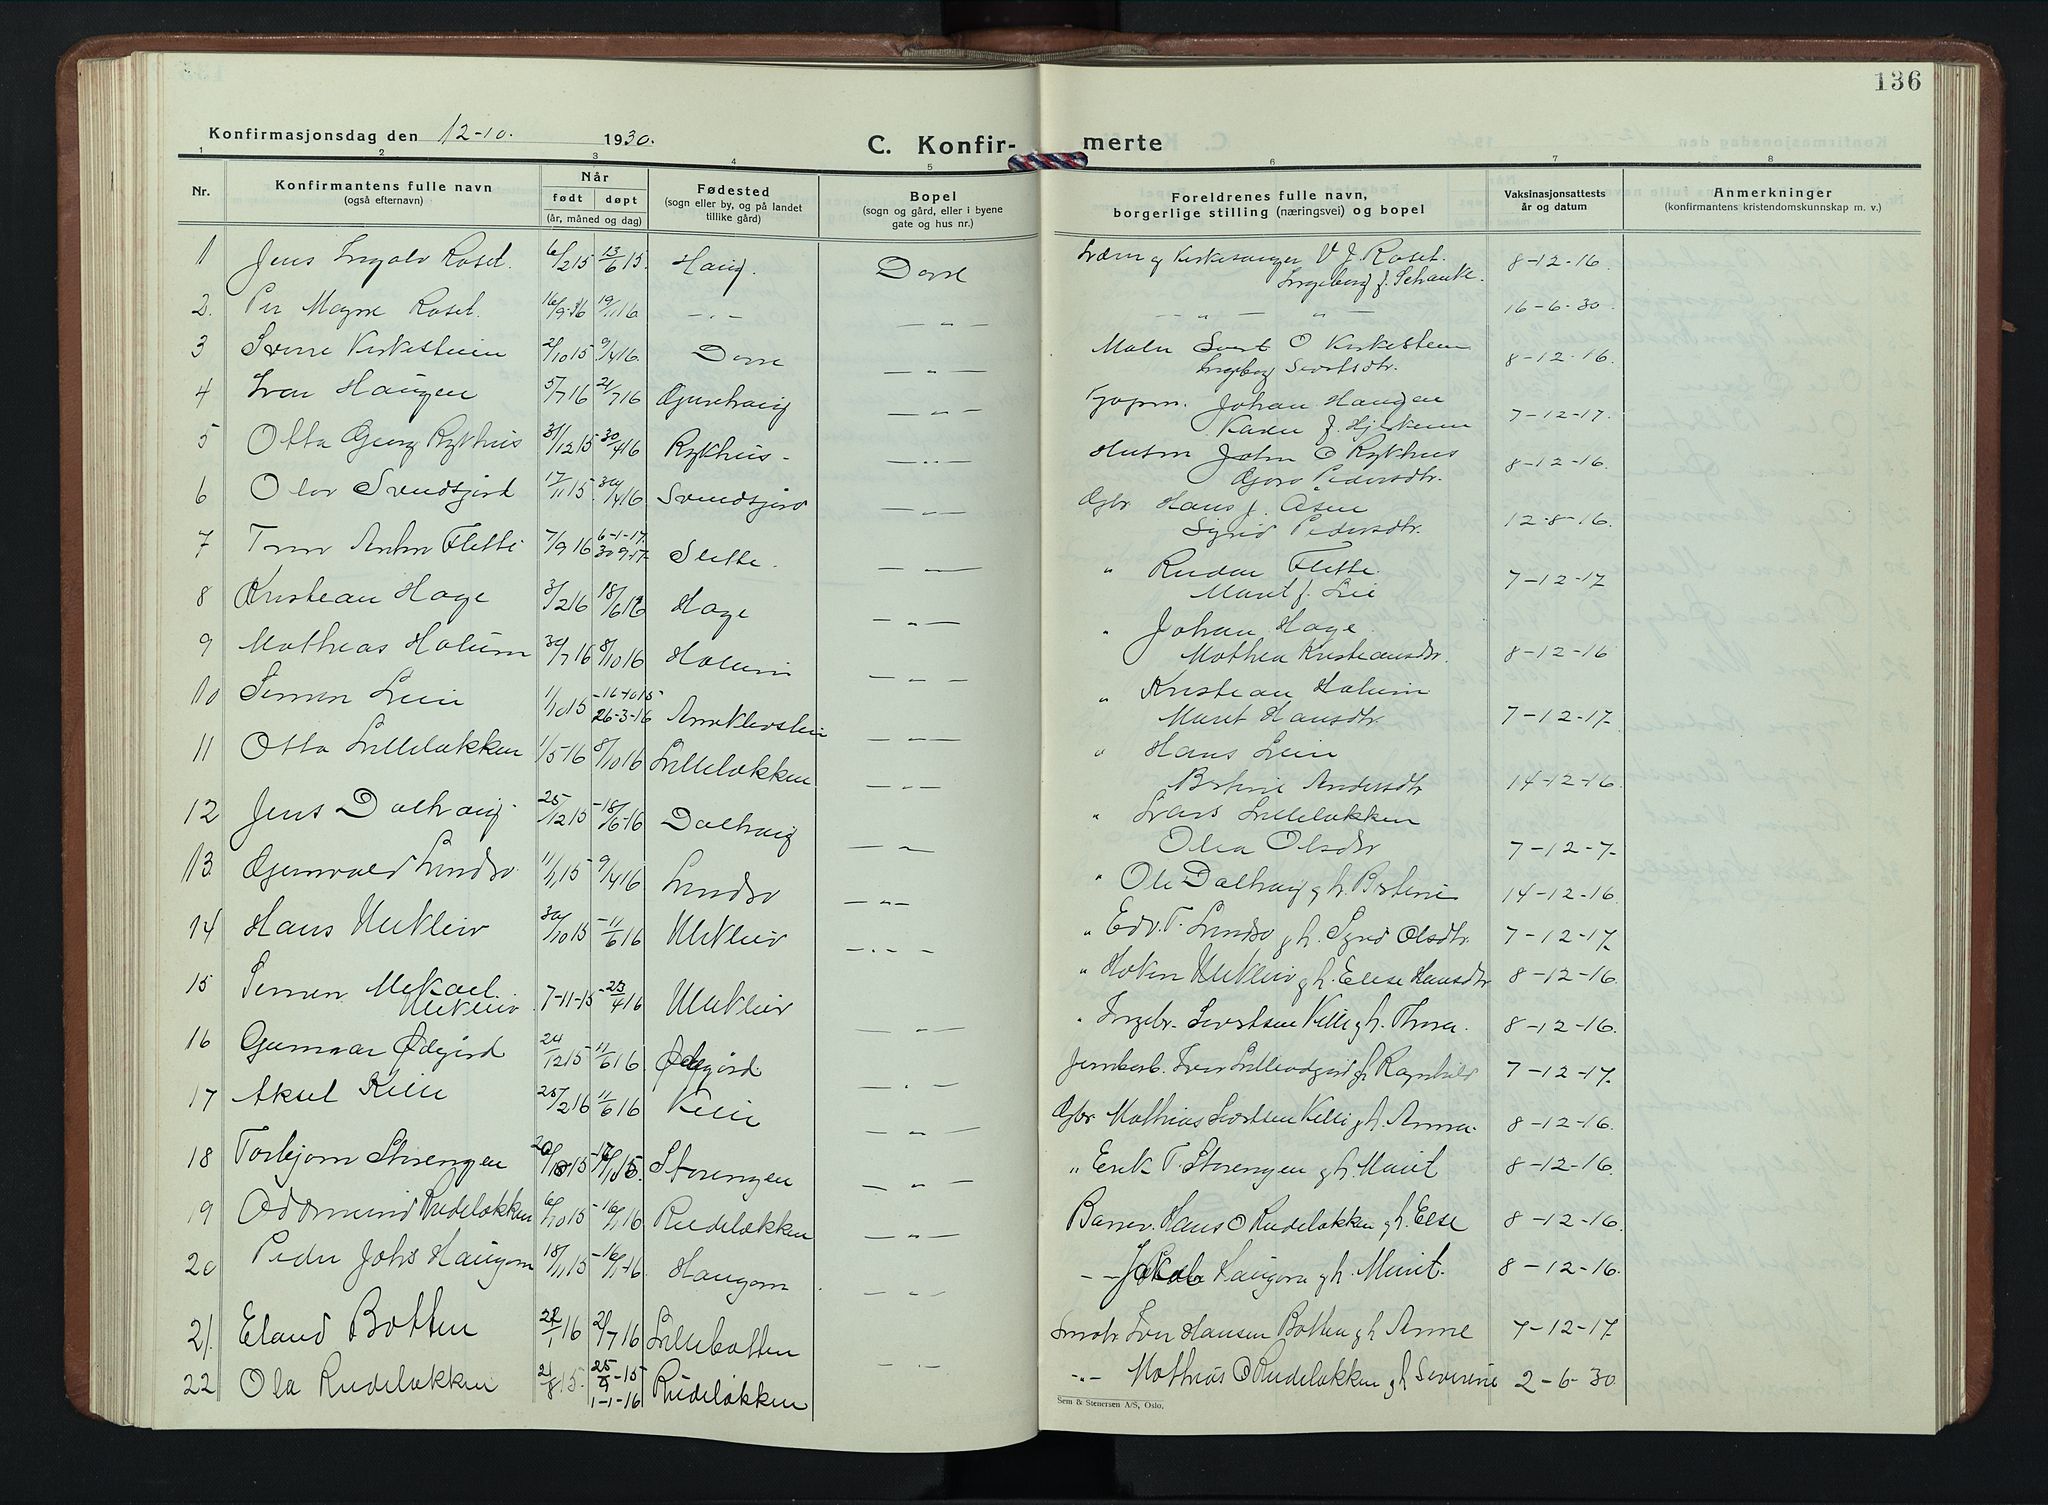 136
Konfirmasjonsdag den 12-10. 1930.
C. Konfir- merte
1 2 3 4 5 6 7 8
Nr.
Konfirmantens fulle navn
(også efternavn)
Når
født døpt
(år, måned og dag)
Fødested
(sogn eller by, og på landet
tillike gård)
Bopel
(sogn og gård, eller i byene
gate og hus nr.)
Foreldrenes fulle navn,
borgerlige stilling (næringsvei) og bopel
Vaksinasjonsattests
år og datum
Anmerkninger
(konfirmantens kristendomskunnskap m. v.)
1 Jens Ingolv Roset. 6/2 15 13/6 15. Haug. Dovre V. J. Roset. 8-12-16.
Ingeborg f. Schanke
2. Per Magne Roset. 16/9 16 19/11 16. — " — — " — 16-6-30.
3 Sverre Kirkestuen 21/10 15 9/4 16. Dovre — " — Maler Sivert O Kirkestuen 8-12-16.
Ingeborg Sivertsdtr.
4 Ivar Haugen 5/7 16 21/7 16 — " — Johan Haugen 7-12-17.
Karen f. Hjerkinn
5 Otto Georg Rykhus 31/12 15 30/4 16 Rykhus - — " — John O Rykhus 8-12-16.
Pedersdtr.
6 Olav Svendsgjord 17/11 15. 30/4 16 Svendsgjord — " — Gbr Hans J. Åsen 12-8-16.
Sigrid Pedersdtr.
7 Flitti 7/9 16 6-1-17. 30 9.17- — " — " Reidar Flitti. 7-12-17
Marit f. Lie
8 Kristean Hage 3/2 16 18/6 16 Hage — " — " Johan Hage. 8-12-16
Mathea Kristeansdtr.
9 Mathias Holum 30/7 16 8/10 16 Holum — " — " Kristean Holum 7-12-17.
Marit Hansdtr.
10 Simen Lein 1/10 15 -16-10 15- 26-3-16 — " — " Hans Lein 14-12-16.
Bertine Andersdtr
11 Otto Lilleløkken 1/5-16 8/10 16 Lilleløkken — " — " Lars Lilleløkken 7-12-7-
Olea Olsdtr
12 Jens Dalhaug 25/12 15 -18/6-16 Dalhaug — " — " Ole Dalhaug g h. Bertine 14-12-16.
13. Gunvald Lindsø 11/1 15 9/4 16 Lindsø — " — " Edv. T. Lindsø g h. Sigrid Olsdtr. 7-12-17.
14 Hans Ulekleiv 30/10 15 -11/6 16 Ulekleiv — " — " Håken Ulekleiv g h. Elise Hansdtr 8-12-16.
15 Simen Mekael 7-11-15 -23/4 16 Ulekleiv — " — " Ingebr. Sivertsen Killi g h. Thora. 8-12-16.
Ulekleiv
16 Gunnar Ødegård 24/12 15 11/6 16 Ødegård. — " — Jernbarb. Iver Lilleødegård g h Ragnhild 7-12-17.
17 Aksel Killi 25/2 16 11/6 16 Killi — " — Gbr Mathias Sivertsen Killi g h. Anna. 8-12-16.
18 Torbjørn Storengen Storengen — " — " Erik T. Storengen g h. Marit 8-12-16.
19 Oddmund Rudeløkken 6/10 15 -16/1 16 Rudeløkken — " — Hans O Rudeløkken g h. Else 8-12-16.
20 Peder Johs Haugom 18/11 15 -16/1-16. Haugom — " — — — Jakob Haugom g h. Marit. 8-12-16.
21. Eland Botten 22/1 16 2/7 16 Lillebotten — " — Småbr Iver Hansen Botten g h Anne 7-12-17.
22 Ola Rudeløkken 21/8 15. 25/9-15 1-1-16 Rudeløkken — " — Mathias O Rudeløkken g h Severine 2-6-30
Sem & Stenersen A/S, Oslo.